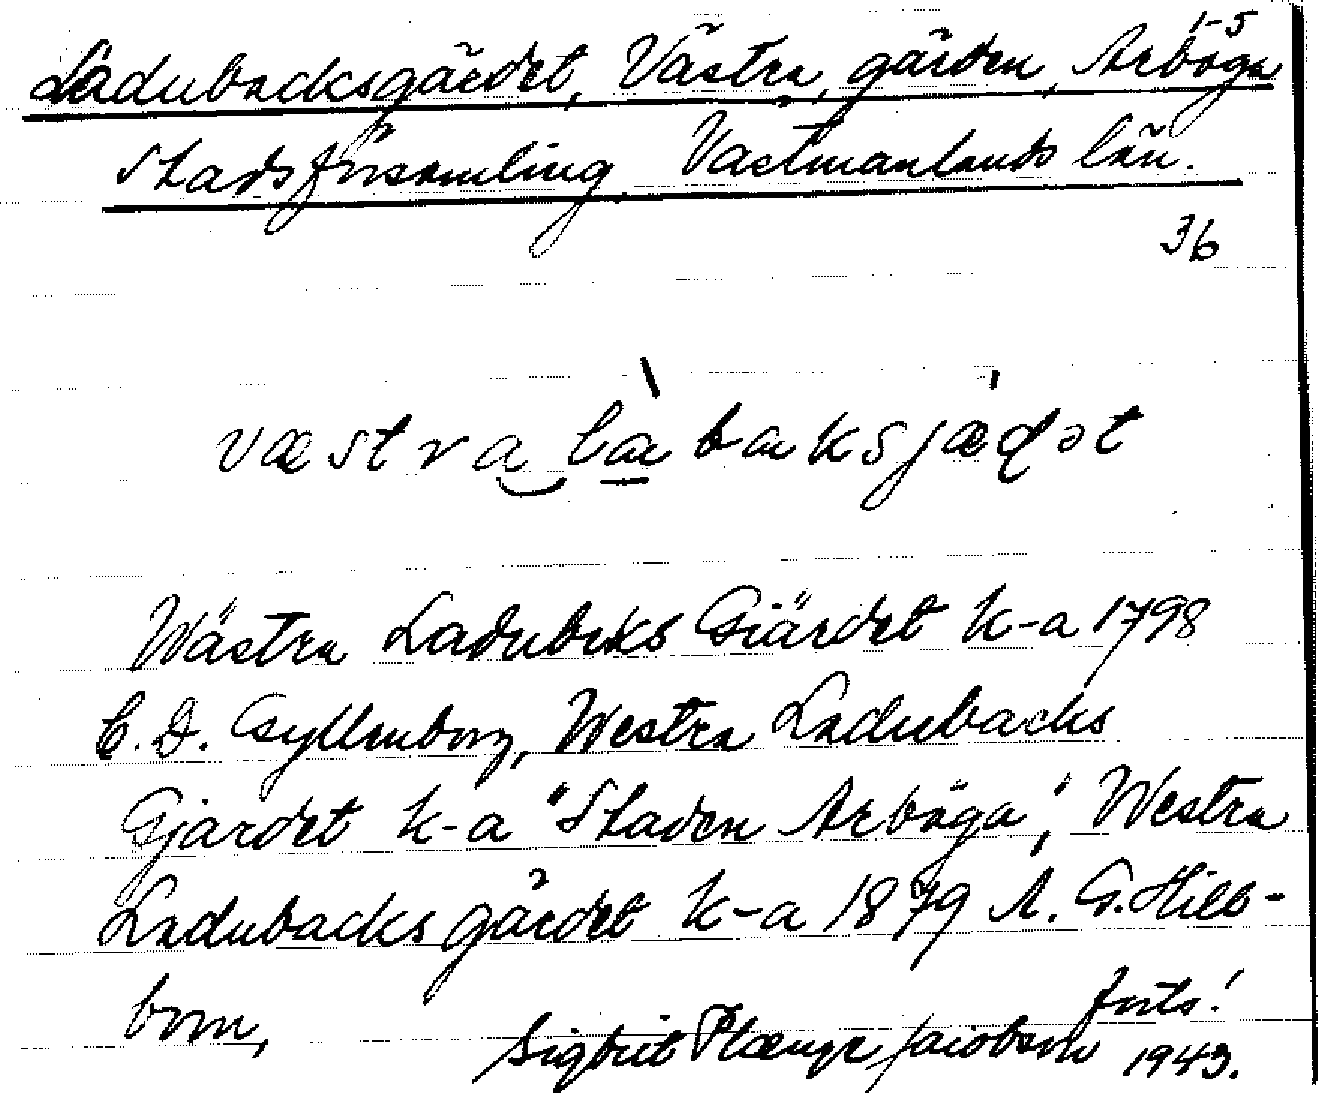 1-5
Ladubacksgärdet, Västra, gärden, Arboga
Stadsförsamling Västmanlands län.
36
væstra la baksjæḍət
Wästra Ladubcks Giärdet k-a 1798
C. D. Gyllenborg, Westra Ladubacks
Gjärdet k-a "Staden Arboga", Westra
Ladubacks gärdet k-a 1879 A. G. Hill-
bom,
forts!
Sigbrit Plænge Jacobson 1943.